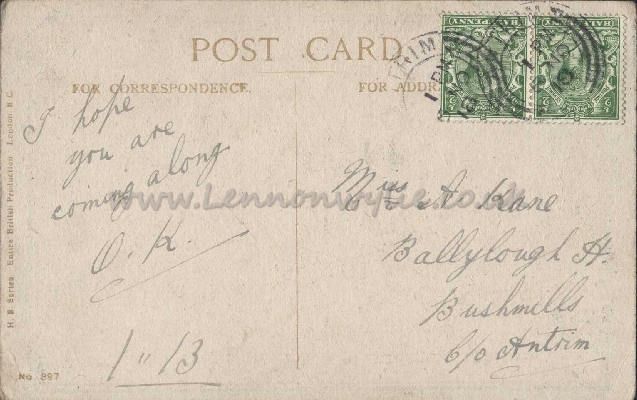 POST CARD.
FOR CORRESPONDENCE.
FOR ADDR
I hope
you are
coming along
O.K.
1" 13
Mrs A Kane
Ballylough H.
Bushmills
C/o Antrim
www.Lennonwylie.co.uk
HALFPENNY
HALFPENNY
TRIM
1 PM
1 PM
H. B. Series. Entire British Production London E.C.
No. 897